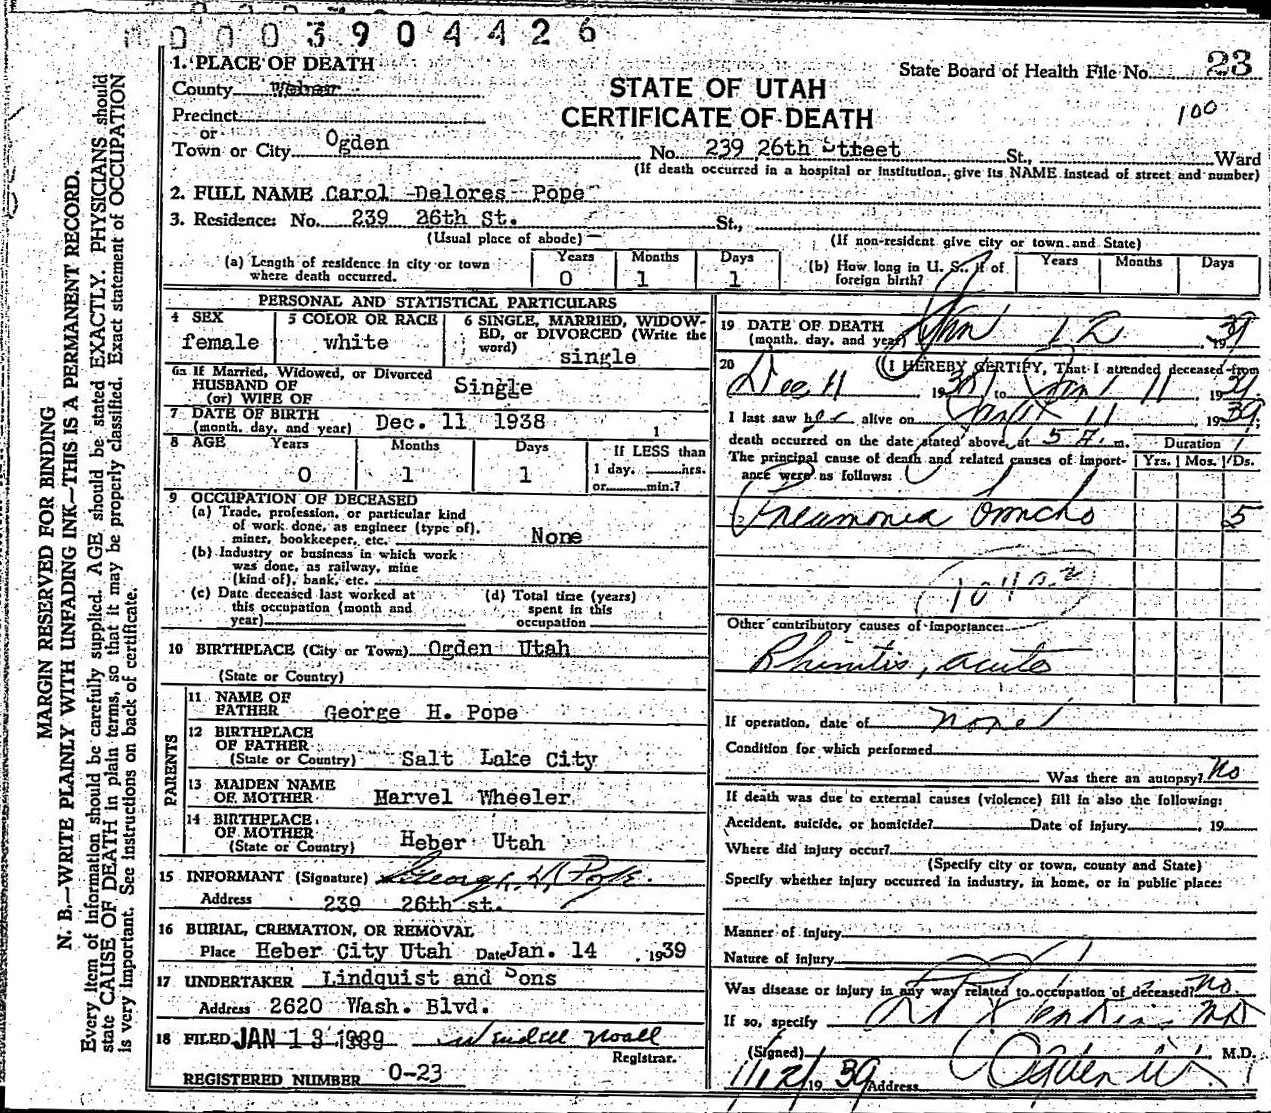 0003904426
State Board of Health File No. 23
100
STATE OF UTAH
CERTIFICATE OF DEATH
1. PLACE OF DEATH
County Weber
Precinct
or
Town or City Ogden No. 239 26th Stteet St., Ward
(If death occurred in a hospital or institution, give its NAME instead of street and number)
2. FULL NAME Carol Delores Pope
3. Residence: No. 239 26th St. St.,
(Usual place of abode) (If non-resident give city or town and State)
(a) Length of residence in city or town where death occurred. Years 0 Months 1 Days 1
(b) How long in U. S., if of foreign birth? Years Months Days
PERSONAL AND STATISTICAL PARTICULARS
4 SEX female
5 COLOR OR RACE white
6 SINGLE, MARRIED, WIDOW-
ED, or DIVORCED (Write the
word) single
6a If Married, Widowed, or Divorced
HUSBAND OF
(or) WIFE OF Single
7 DATE OF BIRTH
(month, day, and year) Dec. 11 1938 1
8 AGE Years 0 Months 1 Days 1
If LESS than
1 day, hrs.
or min.?
9 OCCUPATION OF DECEASED
(a) Trade, profession, or particular kind
of work done, as engineer (type of),
miner, bookkeeper, etc. None
(b) Industry or business in which work
was done, as railway, mine
(kind of), bank, etc.
(c) Date deceased last worked at
this occupation (month and
year)
(d) Total time (years)
spent in this
occupation
10 BIRTHPLACE (City or Town) Ogden Utah
(State or Country)
PARENTS
11 NAME OF
FATHER George H. Pope
12 BIRTHPLACE
OF FATHER
(State or Country) Salt Lake City
13 MAIDEN NAME
OF MOTHER Marvel Wheeler
14 BIRTHPLACE
OF MOTHER
(State or Country) Heber Utah
15 INFORMANT (Signature) George H. Pope
Address 239 26th st.
16 BURIAL, CREMATION, OR REMOVAL
Place Heber City Utah Date Jan. 14, 1939
17 UNDERTAKER Lindquist and Sons
Address 2620 Wash. Blvd.
18 FILED JAN 13 1939 Wendell Noall
Registrar.
REGISTERED NUMBER 0-23
19 DATE OF DEATH
(month, day, and year) Jan 12 1939
20 (I HEREBY CERTIFY, That I attended deceased from
Dec 11 1938 to Jan 11, 1939
I last saw her alive on Jan 11 1939;
death occurred on the date stated above, at 5 A. m. Duration
The principal cause of death and related causes of import- Yrs. Mos. Ds.
ance were as follows:
Pneumonia Broncho 5
Other contributory causes of importance:
Rhinitis, acute
If operation, date of none
Condition for which performed
Was there an autopsy? No
If death was due to external causes (violence) fill in also the following:
Accident, suicide, or homicide? Date of injury , 19
Where did injury occur?
(Specify city or town, county and State)
Specify whether injury occurred in industry, in home, or in public place:
Manner of injury
Nature of injury
Was disease or injury in any way related to occupation of deceased? No.
If so, specify
(Signed) M.D.
1/12/1939 Address Ogden Ut.
MARGIN RESERVED FOR BINDING
N. B.—WRITE PLAINLY WITH UNFADING INK—THIS IS A PERMANENT RECORD.
Every item of information should be carefully supplied. AGE should be stated EXACTLY. PHYSICIANS should
state CAUSE OF DEATH in plain terms, so that it may be properly classified. Exact statement of OCCUPATION
is very important. See instructions on back of certificate.